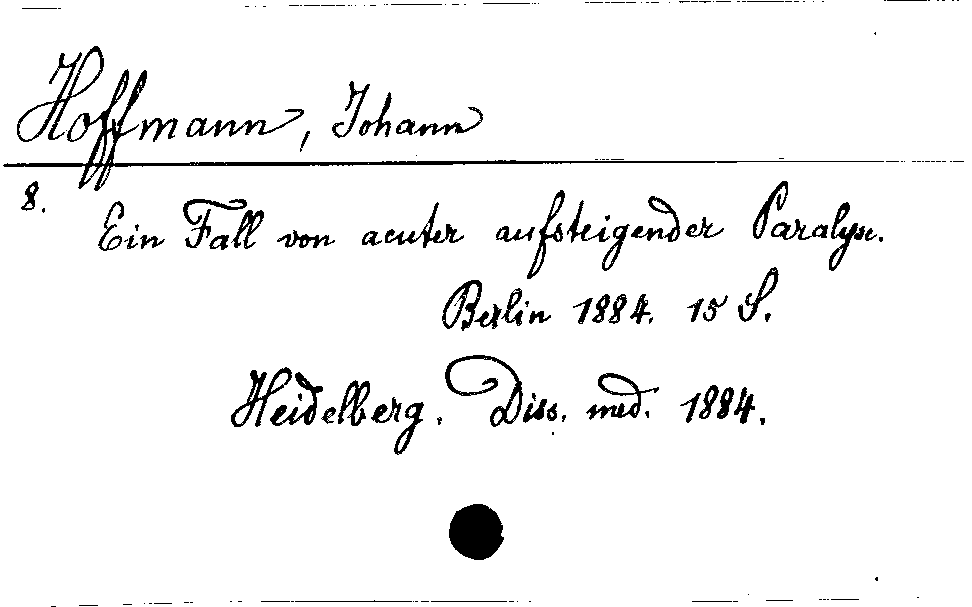 Hoffmann, Johann
8.
Ein Fall von acuter aufsteigender Paralyse.
Berlin 1884. 15 S.
Heidelberg. Diss. med. 1884.